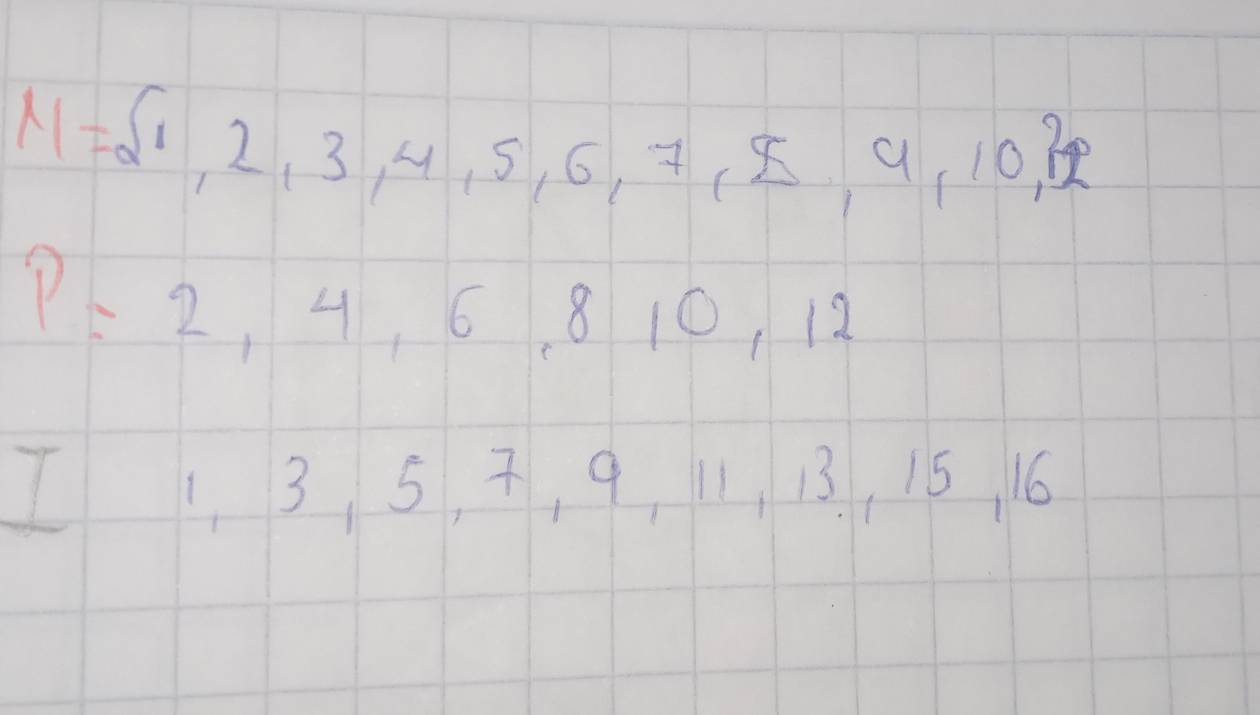 M={1, 2, 3, 4, 5, 6, 7, 8, 9, 10,
P= 2, 4, 6, 8 10, 12
I 1, 3, 5, 7, 9, 11, 13, 15, 16